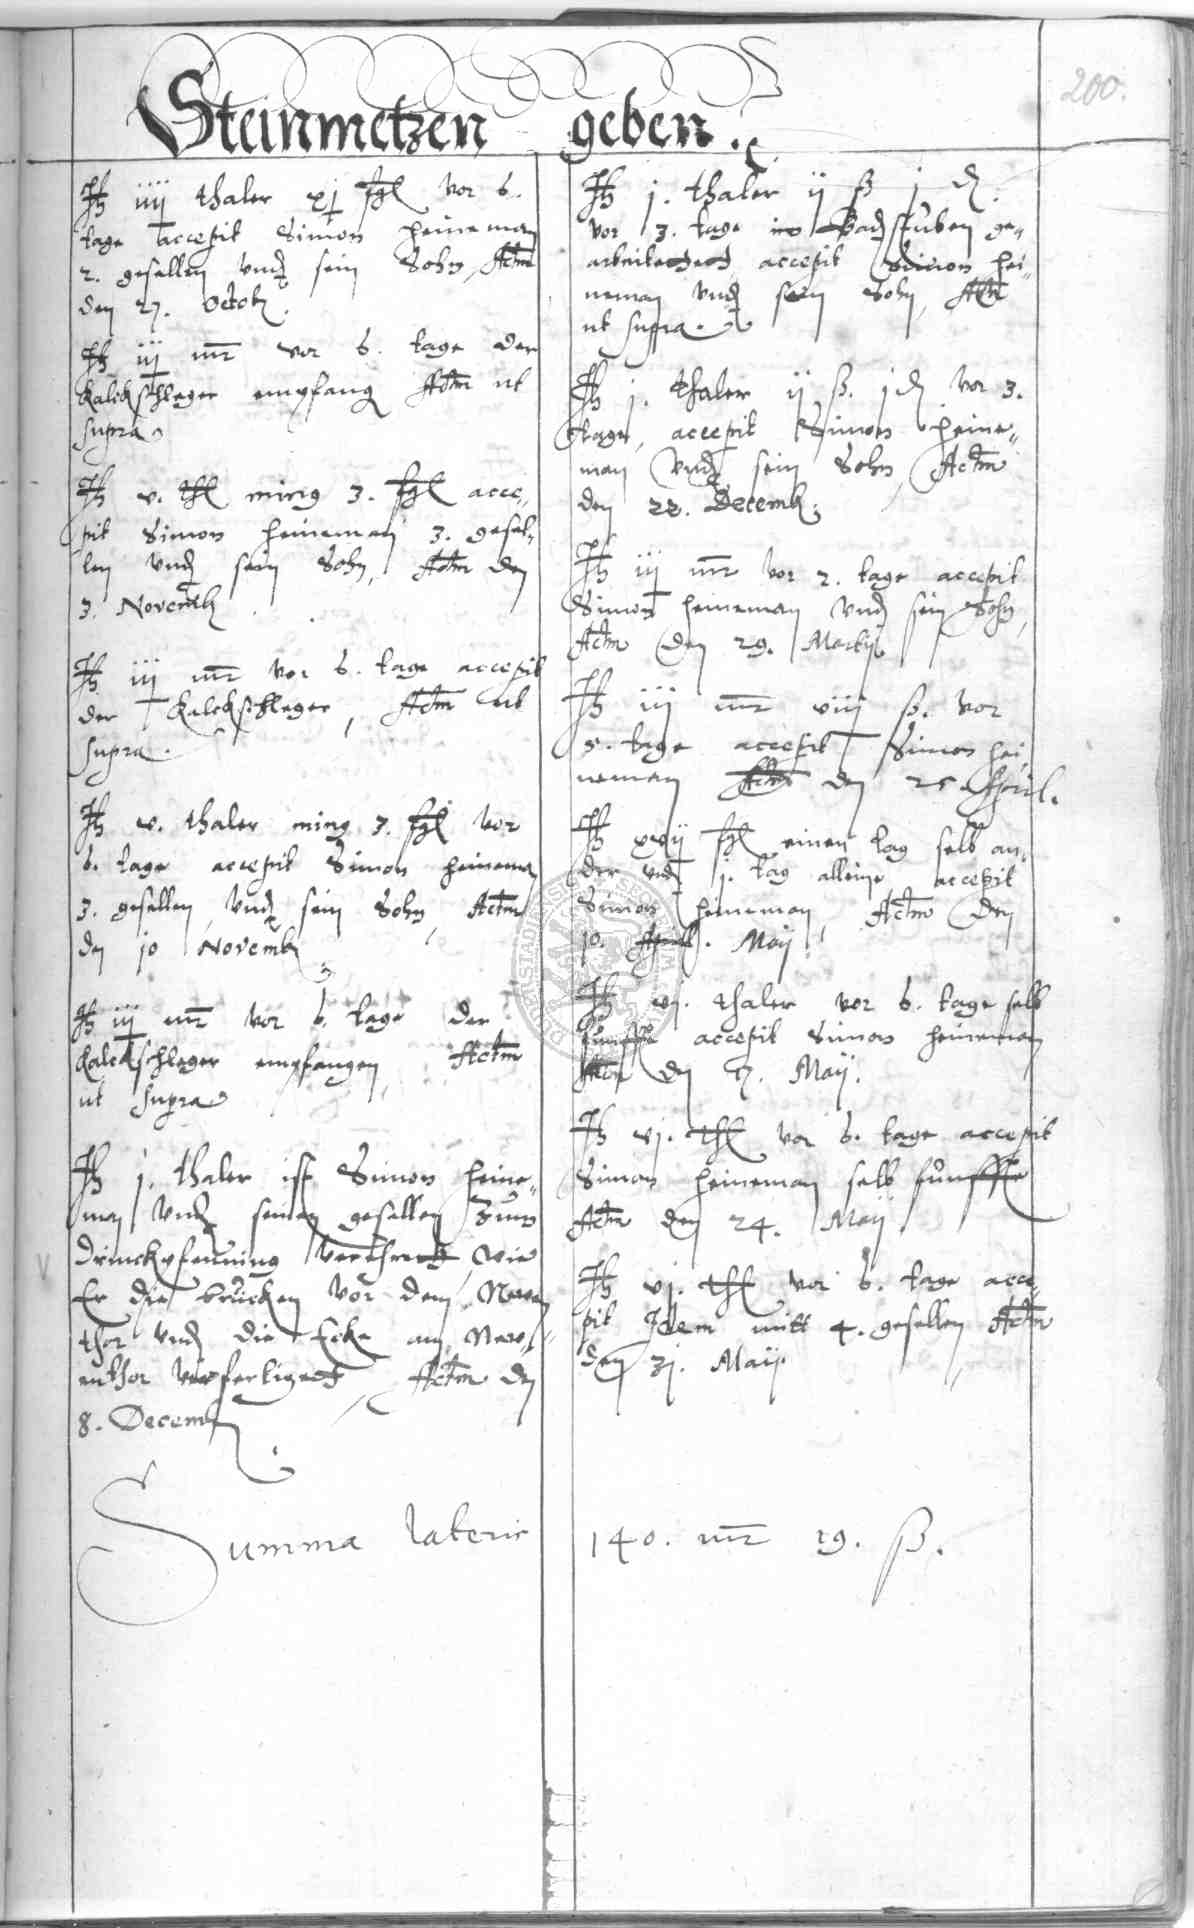 200.
Steinmetzen geben.
It iiij thaler xj fgl vor 6.
tage accepit Simon Heineman
2. gesellen und sein Sohn, Actm
den 27. Octob.
It iij mr vor 6. tage der
Kalckschleger empfang Actm ut
supra
It v. thl ming 3. fgl acce„
pit Simon Heineman 3. gesel„
len und sein Sohn, Actm den
3. Novemb
It iij mr vor 6. tage accepit
der Kalckschleger, Actm ut
supra.
It v. thaler ming 3. fgl vor
6. tage accepit Simon Heineman
3. gesellen, und sein Sohn, Actm
den 10 Novemb
It iij mr vor 6. tage der
Kalckschleger empfangen, Actm
ut supra
It j. thaler ist Simon Heine„
man und seinen gesellen zum
drinckpfenning verehret, wie
Er die brücken vor dem Newen
thor und die Ecke am New„
enthor verfertiget, Actm den
8. Decemb
It j. thaler ij ß j d.
vor 3. tage in Badstuben ge„
arbeitet accepit Simon Hei„
neman und sein Sohn, Actm
ut supra.
It j. thaler ij ß. j d vor 3.
tage, accepit Simon Heine„
man und sein Sohn, Actm
den 22. Decemb.
It iij mr vor 2. tage accepit
Simon Heineman und sein Sohn,
Actm den 29. Martij
It iij mr viij ß. vor
5. tage accepit Simon Hei„
neman Actm den 25 April.
It xvij fgl einen tag selb an„
der und j. tag alleine accepit
Simon Heineman, Actm den
10. April. Maij
It vj. thaler vor 6. tage selb
fünffte accepit Simon Heineman
Actm den 17. Maij.
It vj. thl vor 6. tage accepit
Simon Heineman selb fünffte
Actm den 24. Maij
It vj. thl vor 6. tage acce„
pit Idem mitt 4. gesellen Actm
den 31. Maij
Summa lateris 140. mr 19. ß.